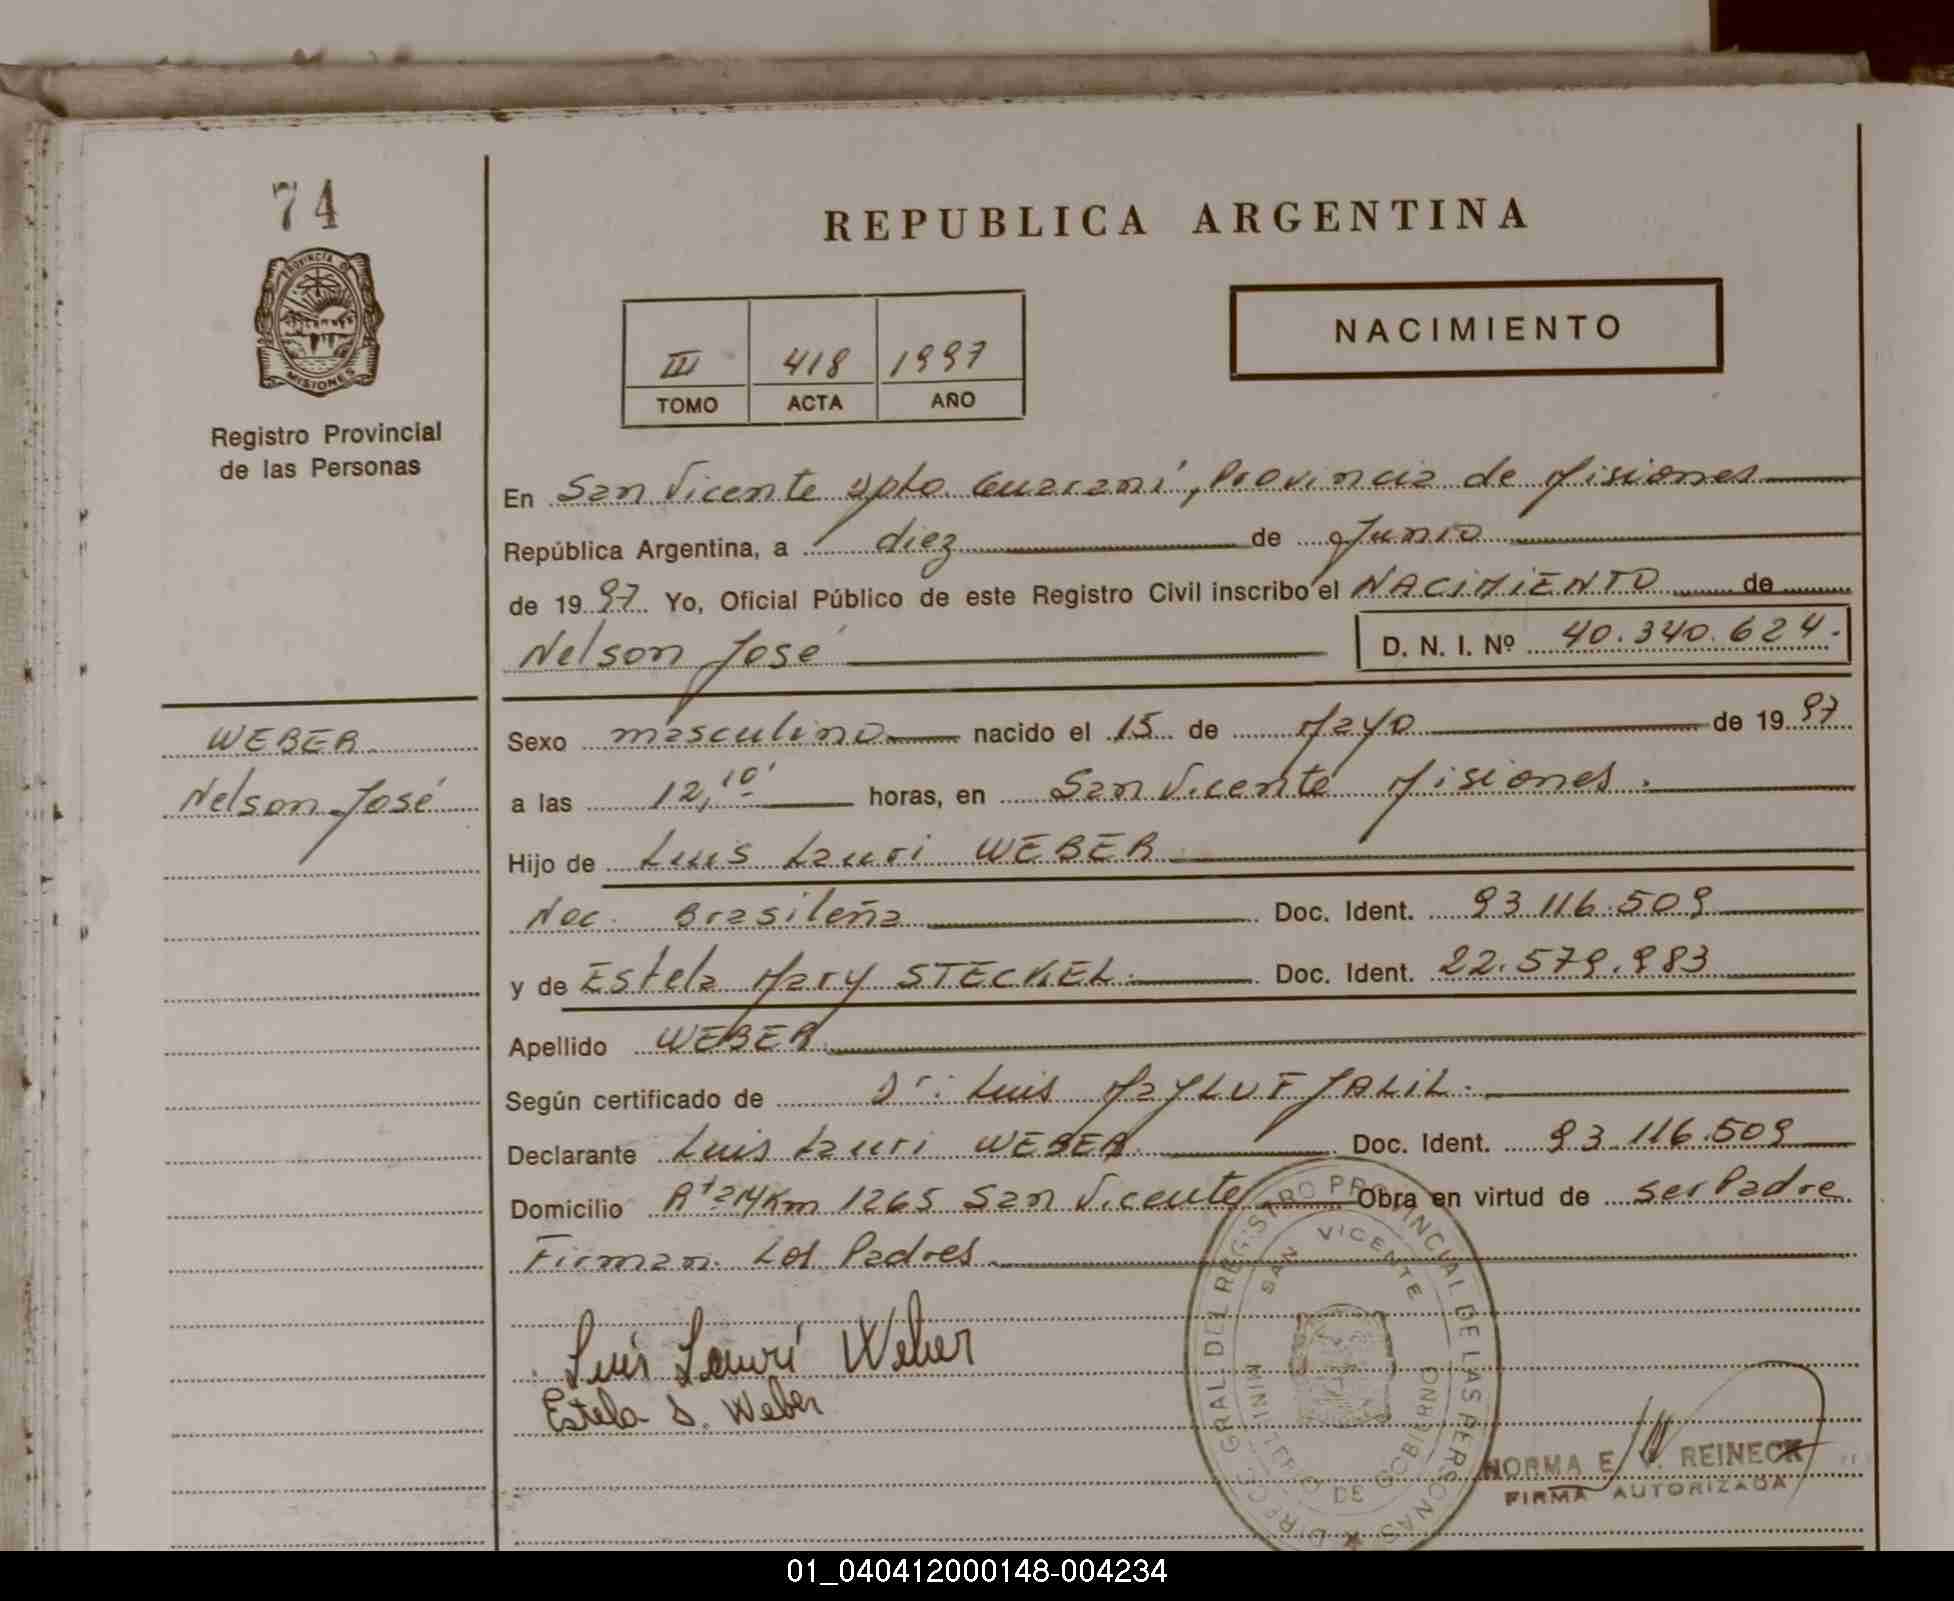 74
PROVINCIA DE
MISIONES
Registro Provincial
de las Personas
WEBER
Nelson José
REPUBLICA ARGENTINA
III 418 1997
TOMO ACTA AÑO
NACIMIENTO
En San Vicente Dpto. Guaraní, Provincia de Misiones
República Argentina, a diez de Junio
de 1997 Yo, Oficial Público de este Registro Civil inscribo el NACIMIENTO de
Nelson José D. N. I. Nº 40.340.624.
Sexo masculino nacido el 15 de Mayo de 1997
a las 12,10' horas, en San Vicente Misiones.
Hijo de Luis Lauri WEBER
Nac. Brasileña Doc. Ident. 93.116.509
y de Estela Mary STECKEL. Doc. Ident. 22.579.983
Apellido WEBER
Según certificado de Dr: Luis MAYLUF JALIL.
Declarante Luis Lauri WEBER Doc. Ident. 93.116.509
Domicilio Rta 14 Km 1265 San Vicente Obra en virtud de ser Padre
Firman Los Padres
Luis Lauri Weber
Estela S. Weber
DIREC. GRAL DEL REGISTRO PROVINCIAL DE LAS PERSONAS
SAN VICENTE
MINISTERIO DE GOBIERNO
NORMA E. REINECK
FIRMA AUTORIZADA
01_040412000148-004234